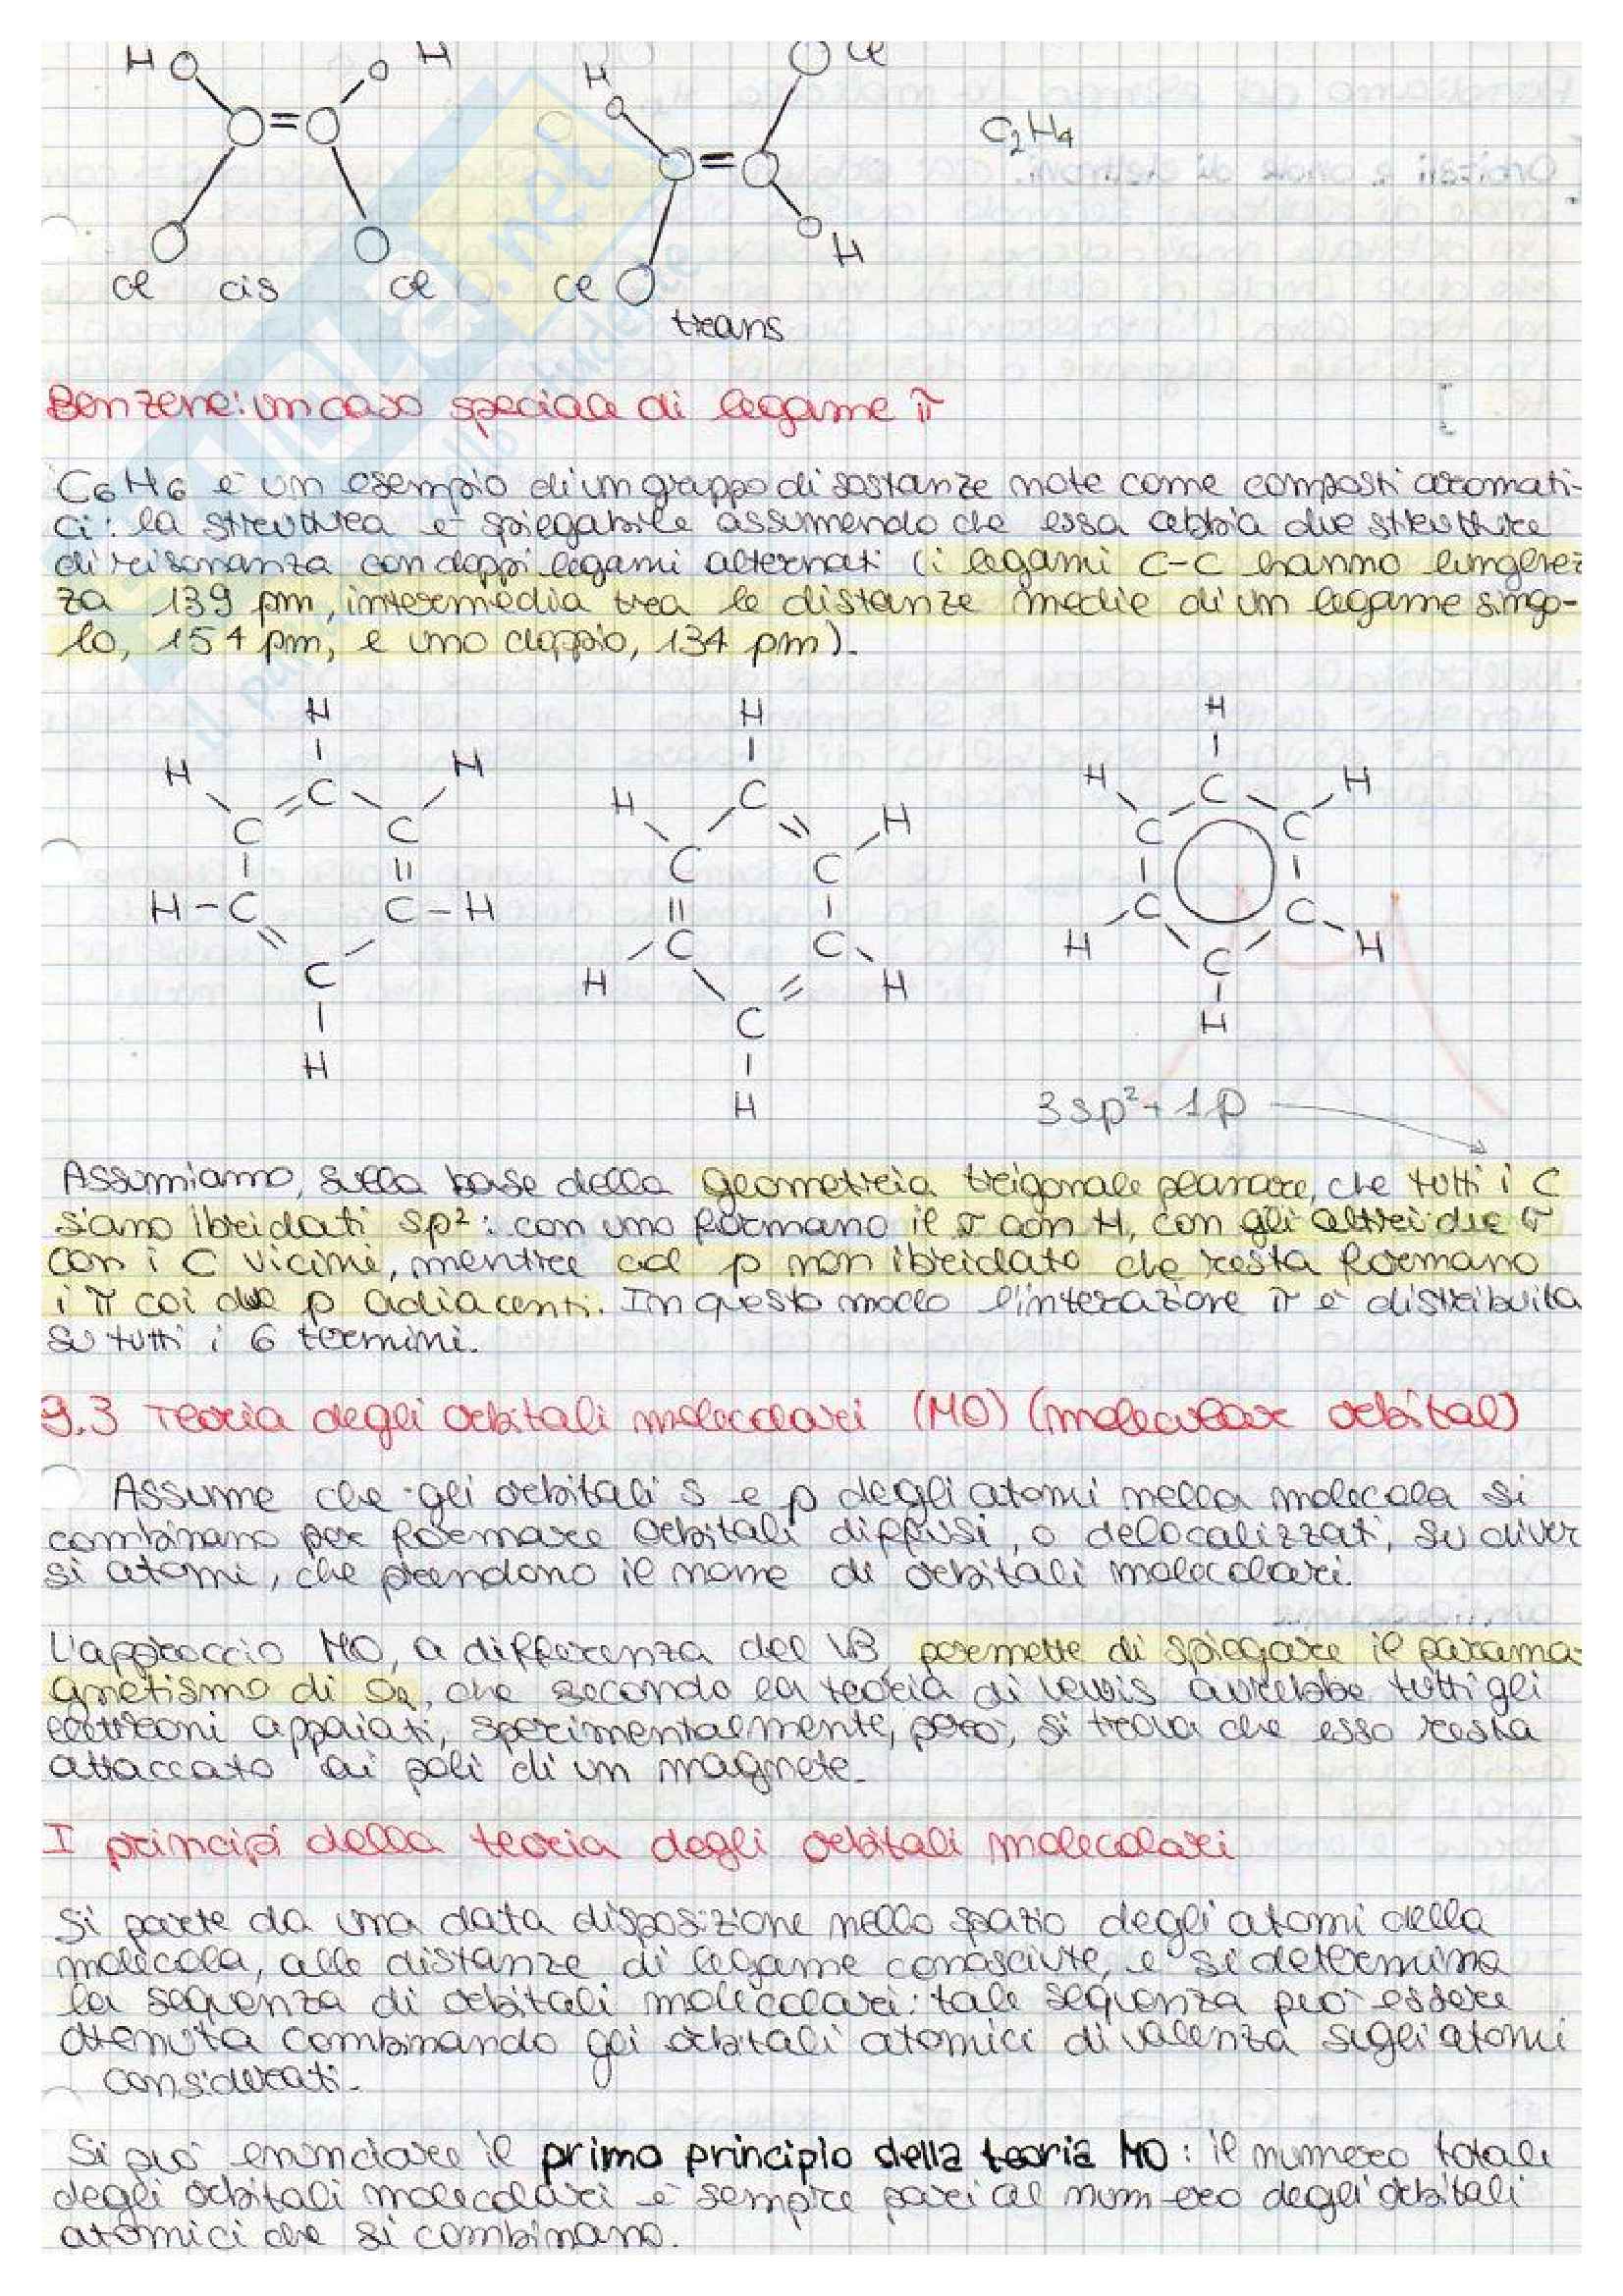 H H H Cl
C₂H₄
H
Cl cis Cl Cl
trans
Benzene: un caso speciale di legame π
C₆H₆ è un esempio di un gruppo di sostanze note come composti aromati-
ci: la struttura è spiegabile assumendo che essa abbia due strutture
di risonanza con doppi legami alternati (i legami C-C hanno lunghez
za 139 pm, intermedia tra le distanze medie di un legame singo-
lo, 154 pm, e uno doppio, 134 pm).
H H H
H H H H H H
C C C
C C C C C C
H-C C-H C C C C
H H H H
C C C
H H H
3sp²+1p
Assumiamo, sulla base della geometria trigonale planare, che tutti i C
siano ibridati sp²: con uno formano il σ con H, con gli altri due σ
con i C vicini, mentre col p non ibridato che resta formano
i π coi due p adiacenti. In questo modo l'interazione π è distribuita
su tutti i 6 termini.
9.3 Teoria degli orbitali molecolari (MO) (molecular orbital)
Assume che gli orbitali s e p degli atomi nella molecola si
combinano per formare orbitali diffusi, o delocalizzati, su diver
si atomi, che prendono il nome di orbitali molecolari.
L'approccio MO, a differenza del VB, permette di spiegare il parama-
gnetismo di O₂, che secondo la teoria di Lewis avrebbe tutti gli
elettroni appaiati, sperimentalmente, però, si trova che esso resta
attaccato ai poli di un magnete.
I principi della teoria degli orbitali molecolari
Si parte da una data disposizione nello spazio degli atomi della
molecola, alle distanze di legame conosciute, e si determina
la sequenza di orbitali molecolari: tale sequenza può essere
ottenuta combinando gli orbitali atomici di valenza sugli atomi
considerati.
Si può enunciare il primo principio della teoria MO: il numero totale
degli orbitali molecolari è sempre pari al numero degli orbitali
atomici che si combinano.